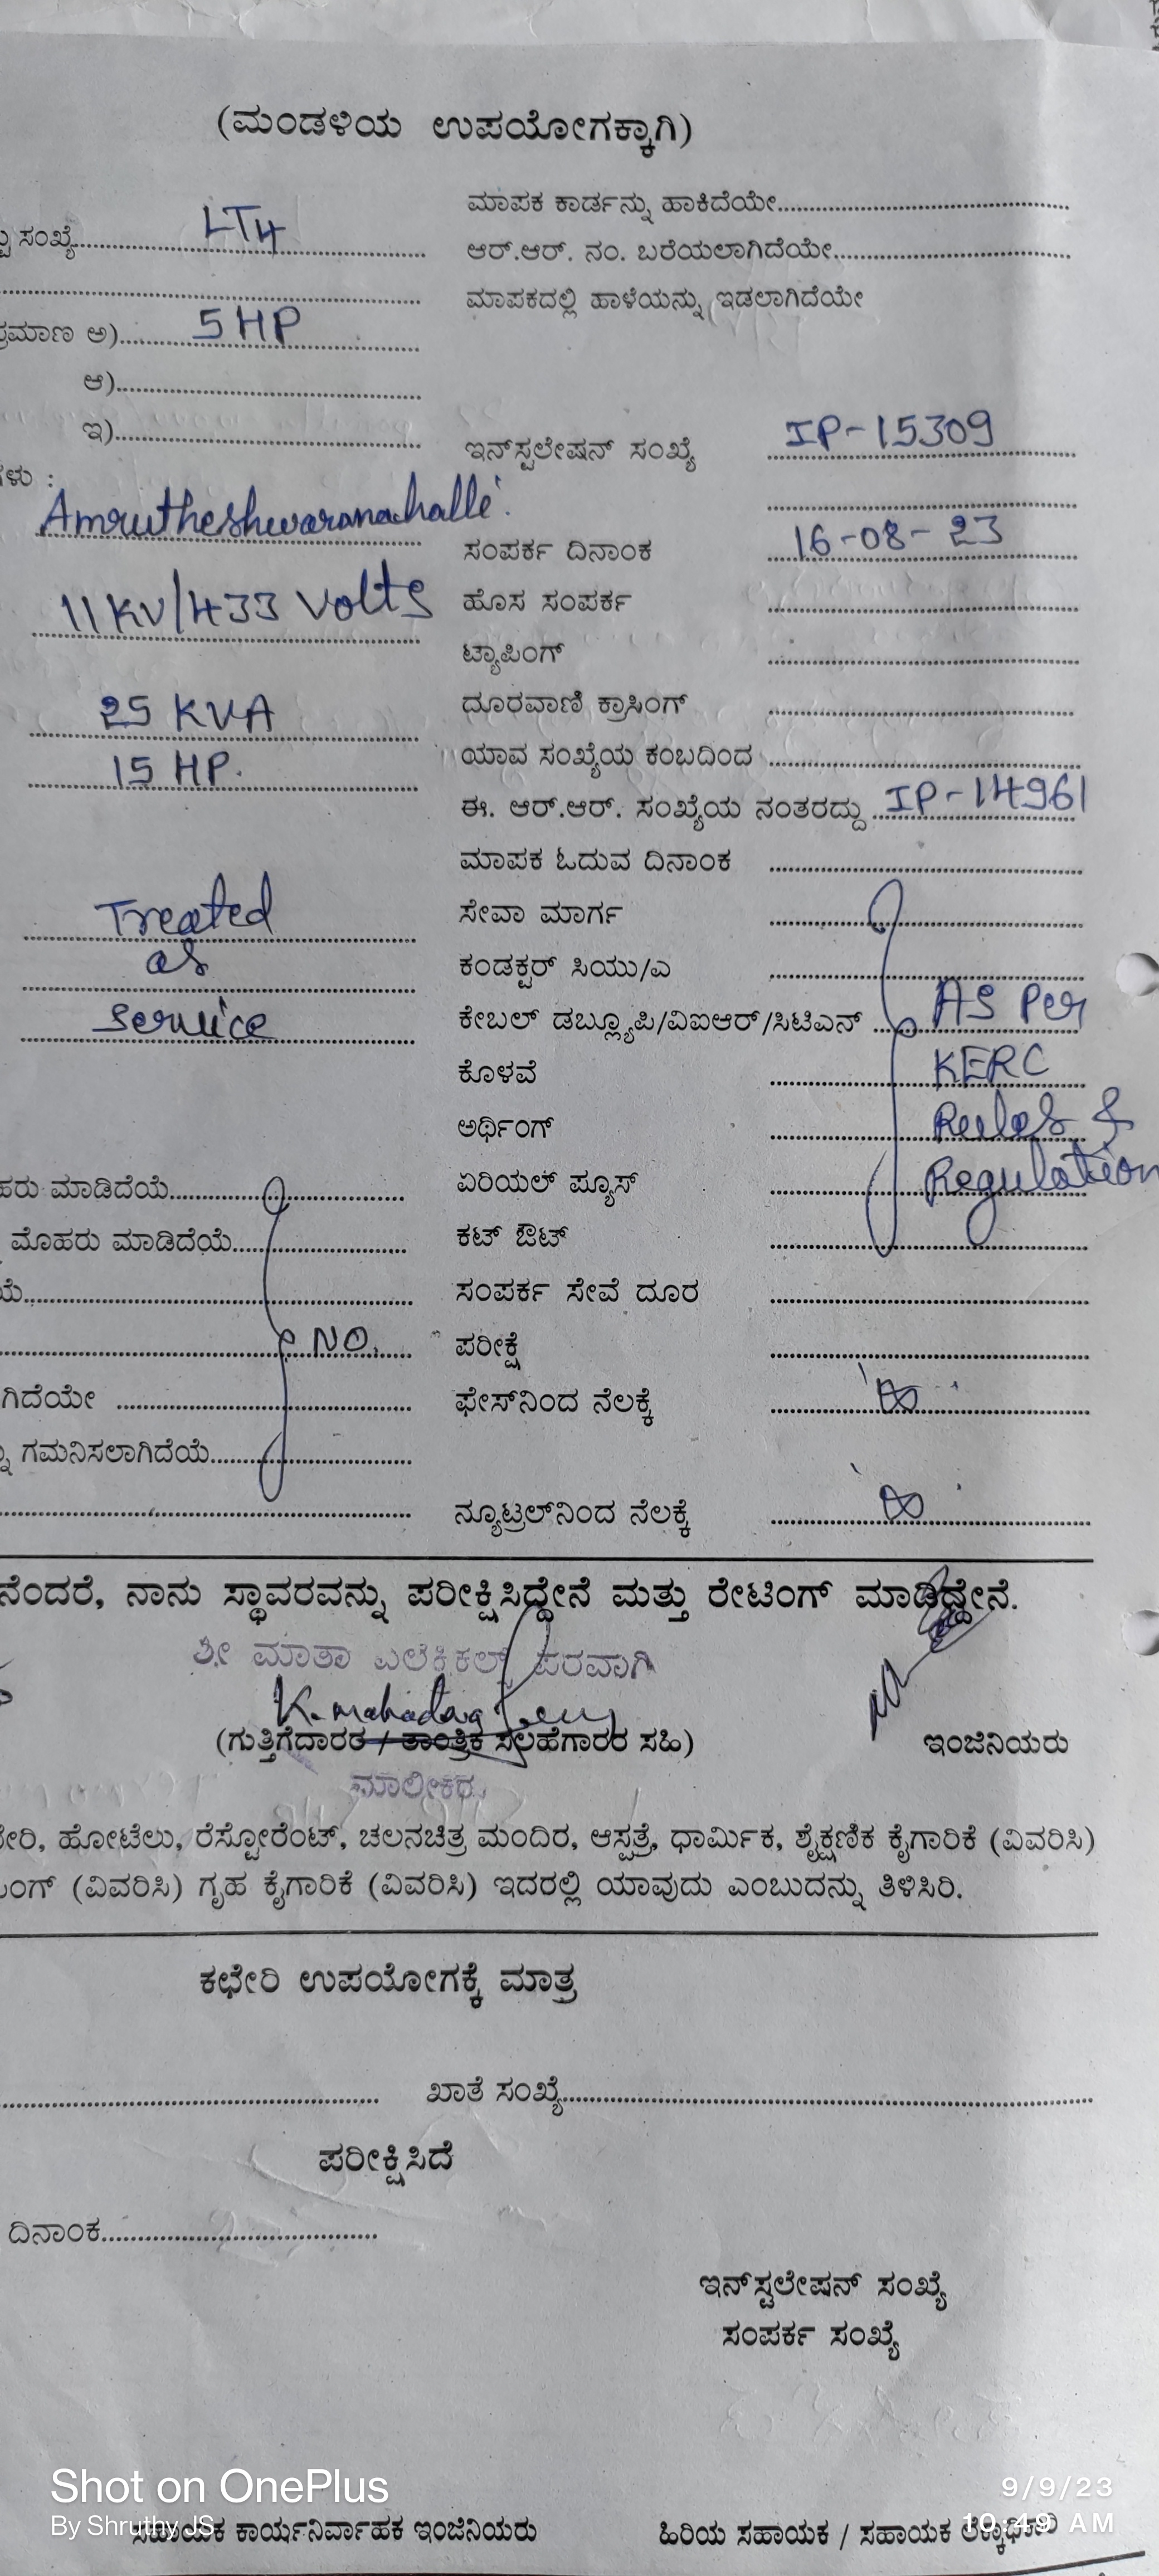 (ಮಂಡಳಿಯ ಉಪಯೋಗಕ್ಕಾಗಿ)
ಸಂಖ್ಯೆ LT4
ಮಾಪಕ ಕಾರ್ಡನ್ನು ಹಾಕಿದೆಯೇ
ಆರ್.ಆರ್. ನಂ. ಬರೆಯಲಾಗಿದೆಯೇ
ಮಾಪಕದಲ್ಲಿ ಹಾಳೆಯನ್ನು ಇಡಲಾಗಿದೆಯೇ
ಅ) 5 HP
ಆ)
ಇ)
ಇನ್‌ಸ್ಟಲೇಷನ್ ಸಂಖ್ಯೆ IP-15309
Amrutheshwaranahalli
ಸಂಪರ್ಕ ದಿನಾಂಕ 16-08-23
11KV/433 Volts
ಹೊಸ ಸಂಪರ್ಕ
ಟ್ಯಾಪಿಂಗ್
25 KVA
ದೂರವಾಣಿ ಕ್ರಾಸಿಂಗ್
15 HP.
ಯಾವ ಸಂಖ್ಯೆಯ ಕಂಬದಿಂದ
ಈ. ಆರ್.ಆರ್. ಸಂಖ್ಯೆಯ ನಂತರದ್ದು IP-14961
ಮಾಪಕ ಓದುವ ದಿನಾಂಕ
Treated
ಸೇವಾ ಮಾರ್ಗ
as
ಕಂಡಕ್ಟರ್ ಸಿಯು/ಎ
service
ಕೇಬಲ್ ಡಬ್ಲ್ಯೂಪಿ/ವಿಐಆರ್/ಸಿಟಿಎನ್ AS Per
ಕೊಳವೆ KERC
ಅರ್ಥಿಂಗ್ Rules &
ಮಾಡಿದೆಯೆ
ಏರಿಯಲ್ ಪ್ಯೂಸ್ Regulation
ಮೊಹರು ಮಾಡಿದೆಯೆ
ಕಟ್ ಔಟ್
ಸಂಪರ್ಕ ಸೇವೆ ದೂರ
NO.
ಪರೀಕ್ಷೆ
ಫೇಸ್‌ನಿಂದ ನೆಲಕ್ಕೆ
ಗಮನಿಸಲಾಗಿದೆಯೆ
ನ್ಯೂಟ್ರಲ್‌ನಿಂದ ನೆಲಕ್ಕೆ
ನೆಂದರೆ, ನಾನು ಸ್ಥಾವರವನ್ನು ಪರೀಕ್ಷಿಸಿದ್ದೇನೆ ಮತ್ತು ರೇಟಿಂಗ್ ಮಾಡಿದ್ದೇನೆ.
ಶ್ರೀ ಮಾತಾ ಎಲೆಕ್ಟ್ರಿಕಲ್ಸ್ ಪರವಾಗಿ
(ಗುತ್ತಿಗೆದಾರರ / ತಾಂತ್ರಿಕ ಸಲಹೆಗಾರರ ಸಹಿ) ಇಂಜಿನಿಯರು
ಮಾಲೀಕರು
ಹೋಟೆಲು, ರೆಸ್ಟೋರೆಂಟ್, ಚಲನಚಿತ್ರ ಮಂದಿರ, ಆಸ್ಪತ್ರೆ, ಧಾರ್ಮಿಕ, ಶೈಕ್ಷಣಿಕ ಕೈಗಾರಿಕೆ (ವಿವರಿಸಿ)
(ವಿವರಿಸಿ) ಗೃಹ ಕೈಗಾರಿಕೆ (ವಿವರಿಸಿ) ಇದರಲ್ಲಿ ಯಾವುದು ಎಂಬುದನ್ನು ತಿಳಿಸಿರಿ.
ಕಛೇರಿ ಉಪಯೋಗಕ್ಕೆ ಮಾತ್ರ
ಖಾತೆ ಸಂಖ್ಯೆ
ಪರೀಕ್ಷಿಸಿದೆ
ದಿನಾಂಕ
ಇನ್‌ಸ್ಟಲೇಷನ್ ಸಂಖ್ಯೆ
ಸಂಪರ್ಕ ಸಂಖ್ಯೆ
Shot on OnePlus
By Shruthy JS
9/9/23
10:49 AM
ಸಹಾಯಕ ಕಾರ್ಯನಿರ್ವಾಹಕ ಇಂಜಿನಿಯರು ಹಿರಿಯ ಸಹಾಯಕ / ಸಹಾಯಕ